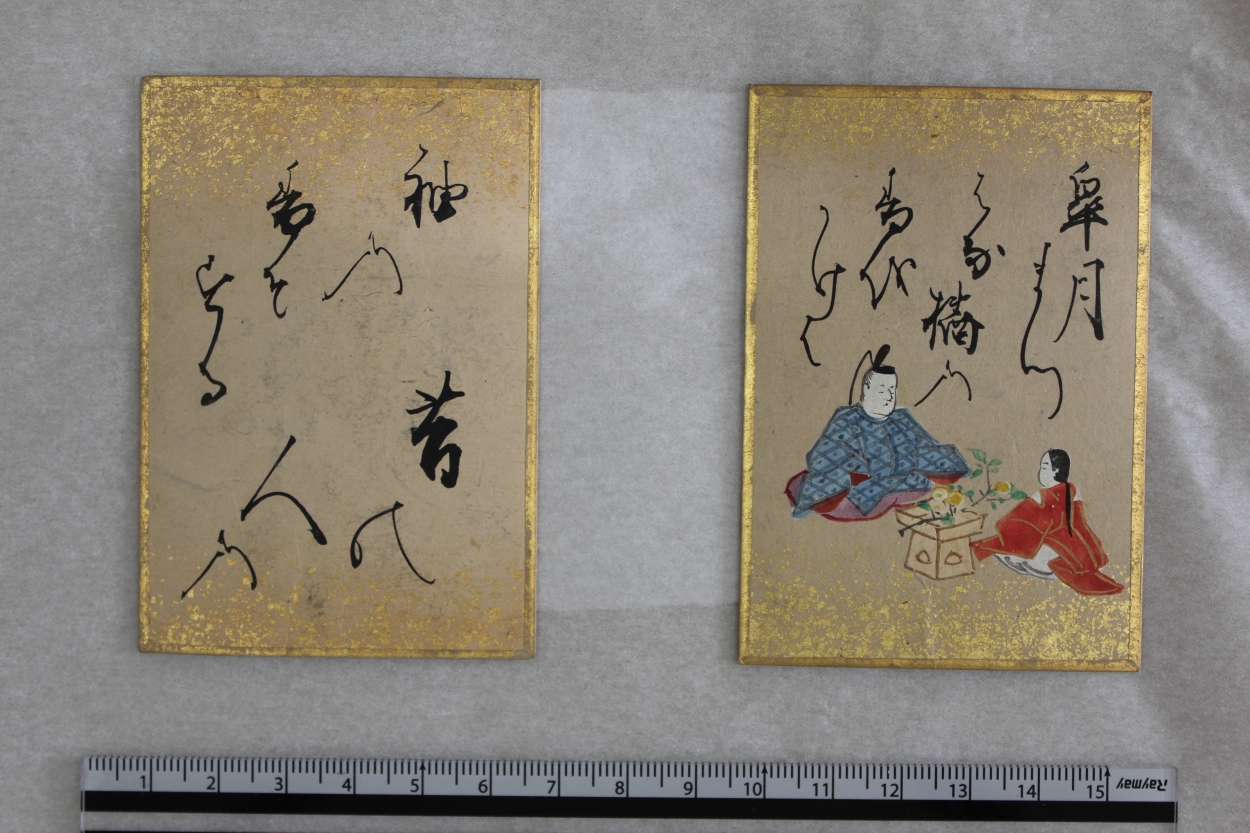 皐月
まつ
はな橘の
香を
かけは
昔の
人の
袖の
香そ
する
1 2 3 4 5 6 7 8 9 10 11 12 13 14 15 Raymay